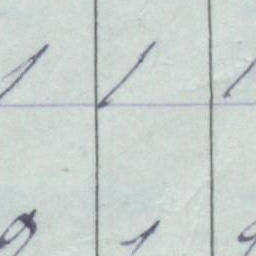 1 1 1
9 1 9